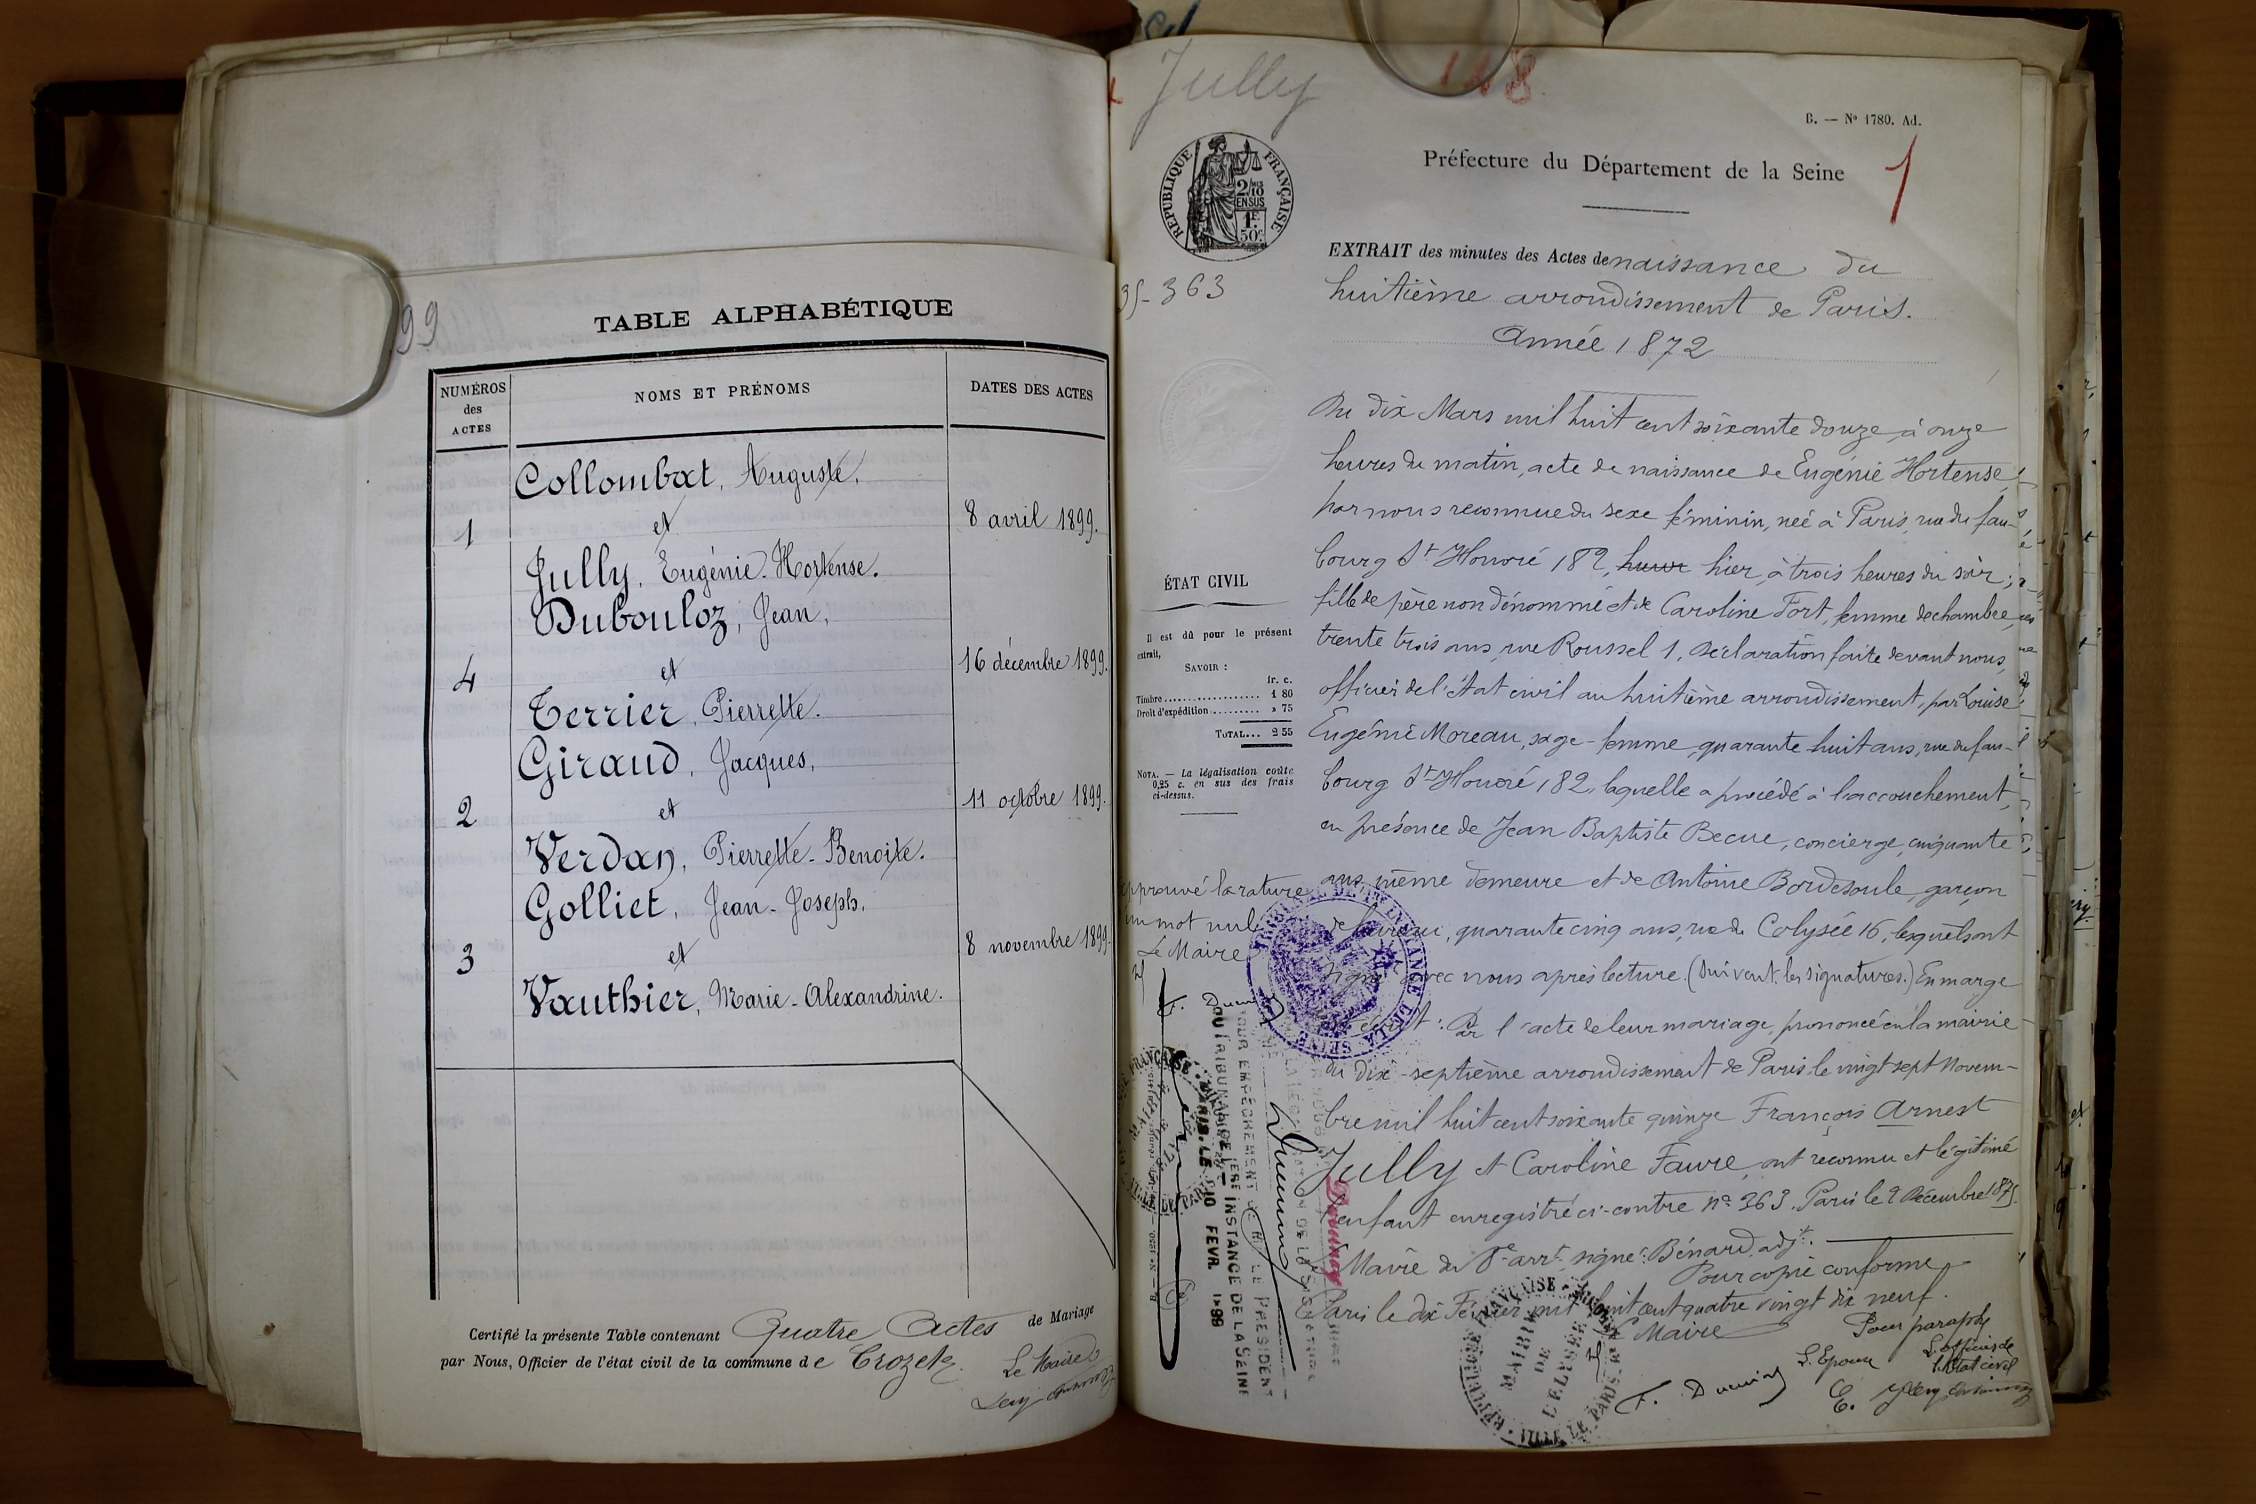 99
TABLE ALPHABÉTIQUE
NUMÉROS des ACTES
NOMS ET PRÉNOMS
DATES DES ACTES
Collombat, Auguste,
1 et 8 avril 1899.
Jully, Eugénie-Hortense.
Dubouloz, Jean,
4 et 16 décembre 1899.
Terrier, Pierrette.
Giraud, Jacques,
2 et 11 octobre 1899.
Verdan, Pierrette-Benoite.
Golliet, Jean-Joseph,
3 et 8 novembre 1899.
Vauthier, Marie-Alexandrine.
Certifié la présente Table contenant Quatre Actes de Mariage
par Nous, Officier de l'état civil de la commune de Crozet
Le Maire
Jully
118
B. — Nº 1780. Ad.
Préfecture du Département de la Seine
1
RÉPUBLIQUE FRANÇAISE
2/10 EN SUS
1F 50C
EXTRAIT des minutes des Actes de naissance du
35-363
huitième arrondissement de Paris.
Année 1872
Du dix Mars mil huit cent soixante douze, à onze
heures du matin, acte de naissance de Eugénie Hortense,
par nous reconnue du sexe féminin, née à Paris, rue du fau-
bourg St Honoré 182, heure hier, à trois heures du soir;
fille de père non dénommé et de Caroline Fort, femme de chambre,
trente trois ans, rue Roussel 1. Déclaration faite devant nous,
officier de l'état civil au huitième arrondissement, par Louise
Eugénie Moreau, sage-femme, quarante huit ans, rue du fau-
bourg St Honoré 182, laquelle a procédé à l'accouchement,
en présence de Jean Baptiste Becue, concierge, cinquante
ans, même demeure et de Antoine Bordesoule, garçon
de bureau, quarante cinq ans, rue du Colysée 16, lesquels ont
signé avec nous après lecture. (Suivent les signatures.) En marge
est écrit: Par l'acte de leur mariage, prononcé en la mairie
du dix-septième arrondissement de Paris le vingt sept Novem-
bre mil huit cent soixante quinze François Arnest
Jully et Caroline Favre, ont reconnu et légitimé
l'enfant enregistré ci-contre nº 363. Paris le 2 Décembre 1875.
Mairie du 8e arrt. signé: Bénard, adjt.
Pour copie conforme
Paris le dix Février mil huit cent quatre vingt dix neuf.
Le Maire
Pour paraphe
L'Epoux
L'officier de l'état civil
ÉTAT CIVIL
Il est dû pour le présent
extrait,
SAVOIR :
fr. c.
Timbre 1 80
Droit d'expédition » 75
TOTAL... 2 55
NOTA. — La légalisation coûte
0,25 c. en sus des frais
ci-dessus.
Approuvé la rature
un mot nul
Le Maire
PARIS, LE 10 FEVR. 1899
DU TRIBUNAL DE 1ERE INSTANCE DE LA SEINE
POUR EMPÊCHEMENT DE M. LE PRESIDENT
MAIRIE DE L'ELYSÉE
VILLE DE PARIS